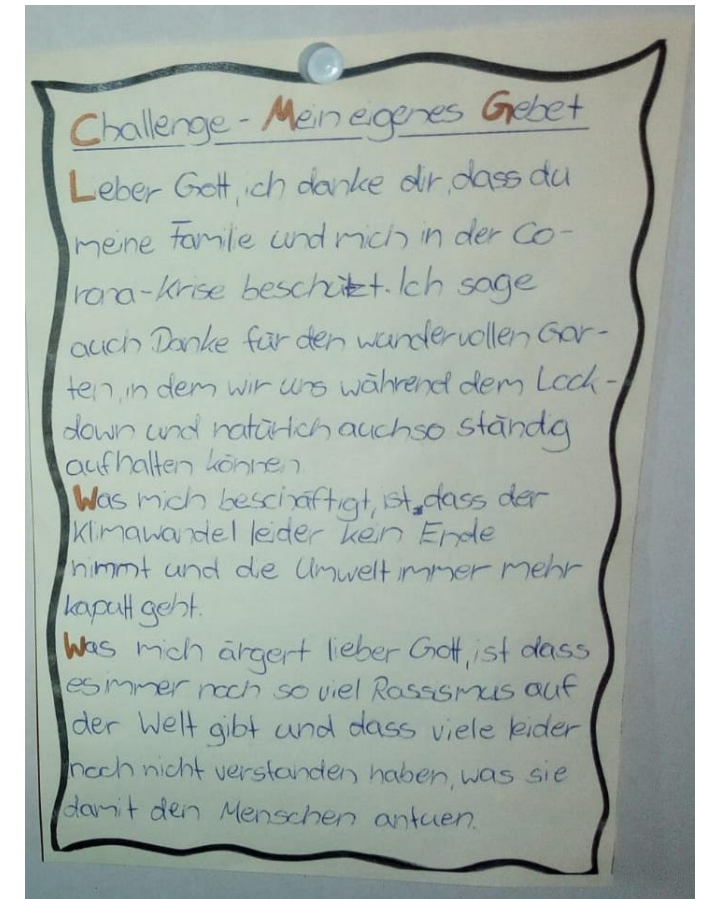 Challenge - Mein eigenes Gebet
Lieber Gott, ich danke dir, dass du
meine Familie und mich in der Co-
rona-Krise beschützt. Ich sage
auch Danke für den wundervollen Gar-
ten, in dem wir uns während dem Lock-
down und natürlich auch so ständig
aufhalten können.
Was mich beschäftigt, ist, dass der
Klimawandel leider kein Ende
nimmt und die Umwelt immer mehr
kaputt geht.
Was mich ärgert lieber Gott, ist dass
es immer noch so viel Rassismus auf
der Welt gibt und dass viele leider
noch nicht verstanden haben, was sie
damit den Menschen antuen.